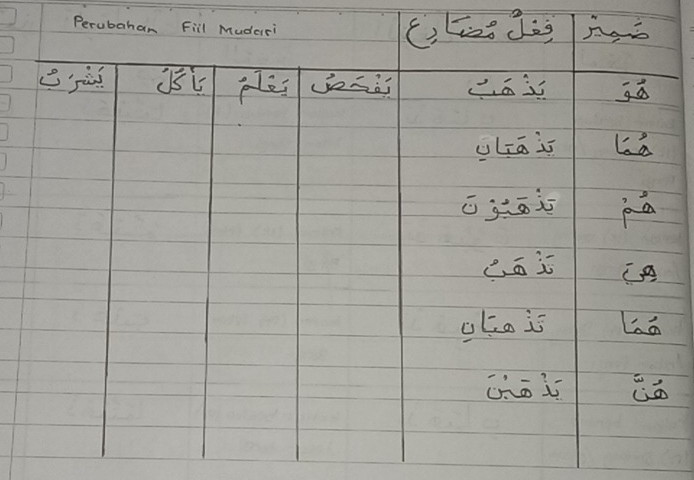 ضَمِيْرٌ فِعْلٌ مُضَارِع Perubahan Fiil Mudari
هُوَ يَذْهَبُ يَفْحَصُ يَعْلَمُ يَأْكُلُ يَشْرَبُ
هُمَا يَذْهَبَانِ
هُمْ يَذْهَبُوْنَ
هِيَ تَذْهَبُ
هُمَا تَذْهَبَانِ
هُنَّ يَذْهَبْنَ